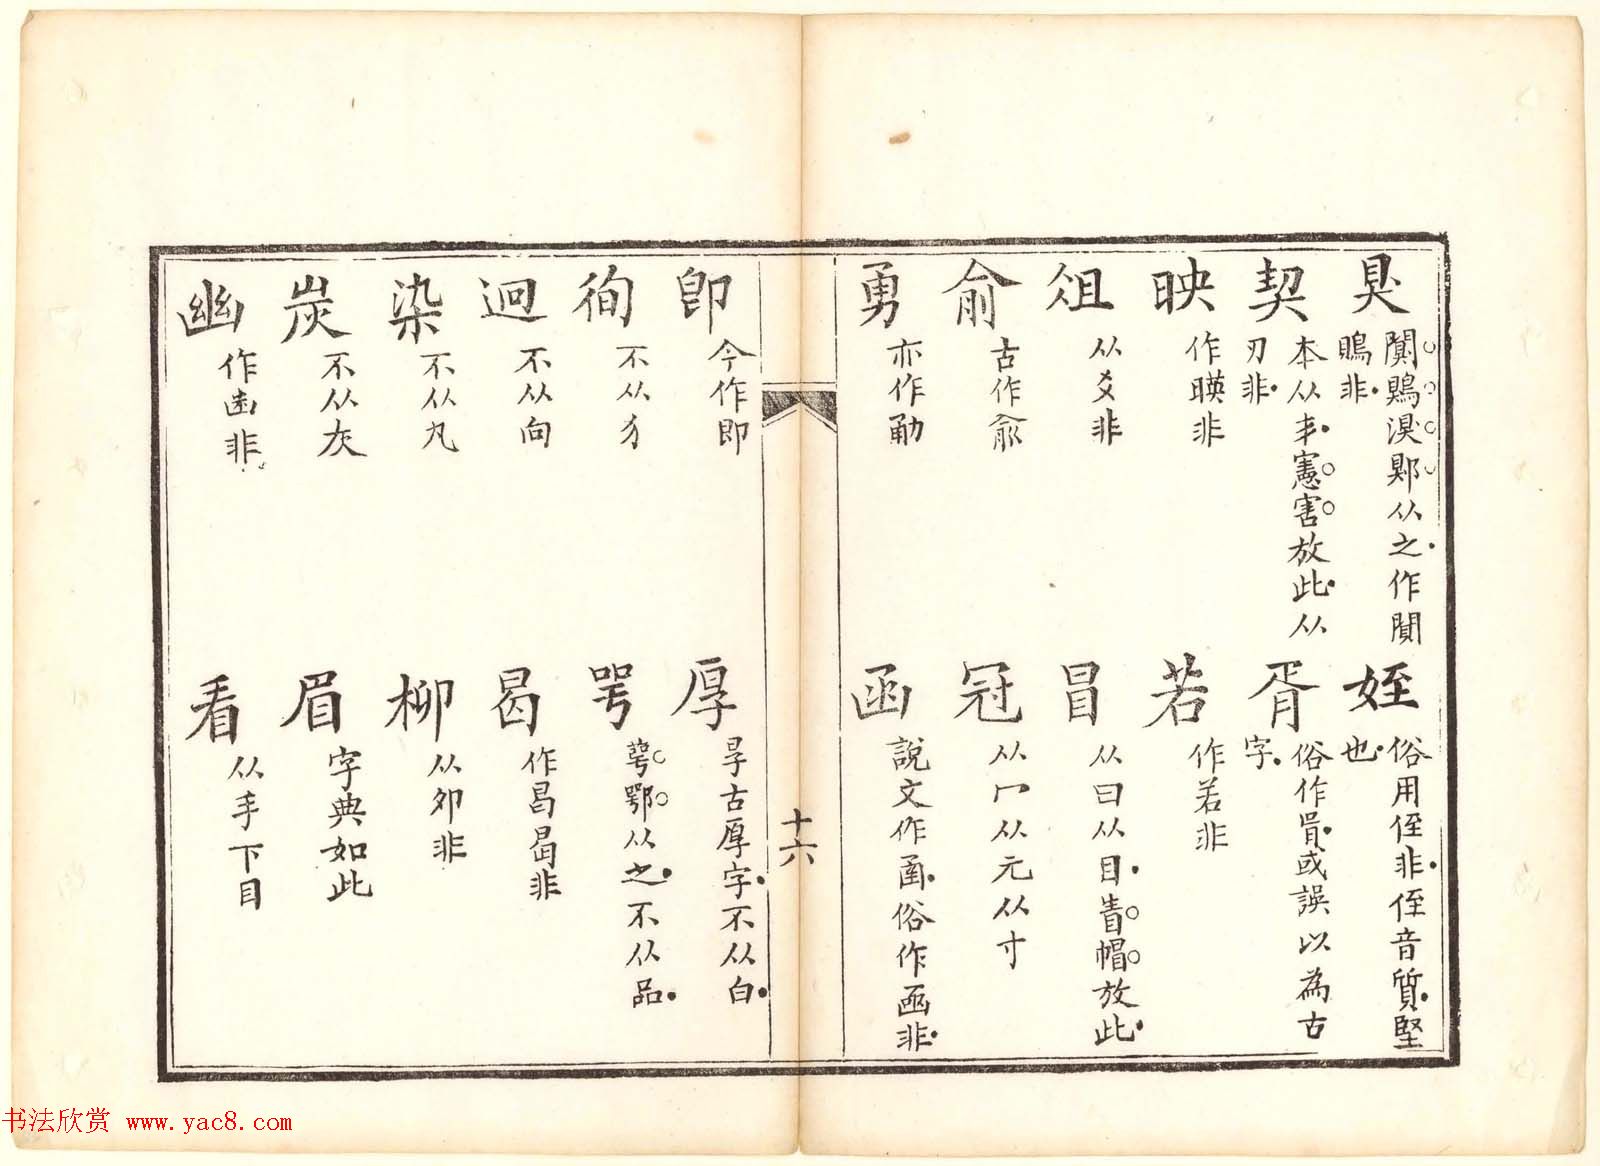 狊 闃鶪湨郹从之作
鵙非
姪 俗用侄非侄音質堅
也
契 本从丯憲害放此从
刃非
胥 俗作或誤以為古
字
映 作暎非
若 作若非
俎 从爻非
冒 从曰从目帽放此
俞 古作兪
冠 从冖从元从寸
勇 亦作勈
函 說文作圅俗作凾非
十六
卽 今作即
厚 㫗古厚字不从白
徇 不从犭
咢 萼鄂从之不从品
迥 不从向
曷 作昌曷非
染 不从丸
柳 从夘非
炭 不从灰
眉 字典如此
幽 作非
看 从手下目
书法欣赏 www.yac8.com